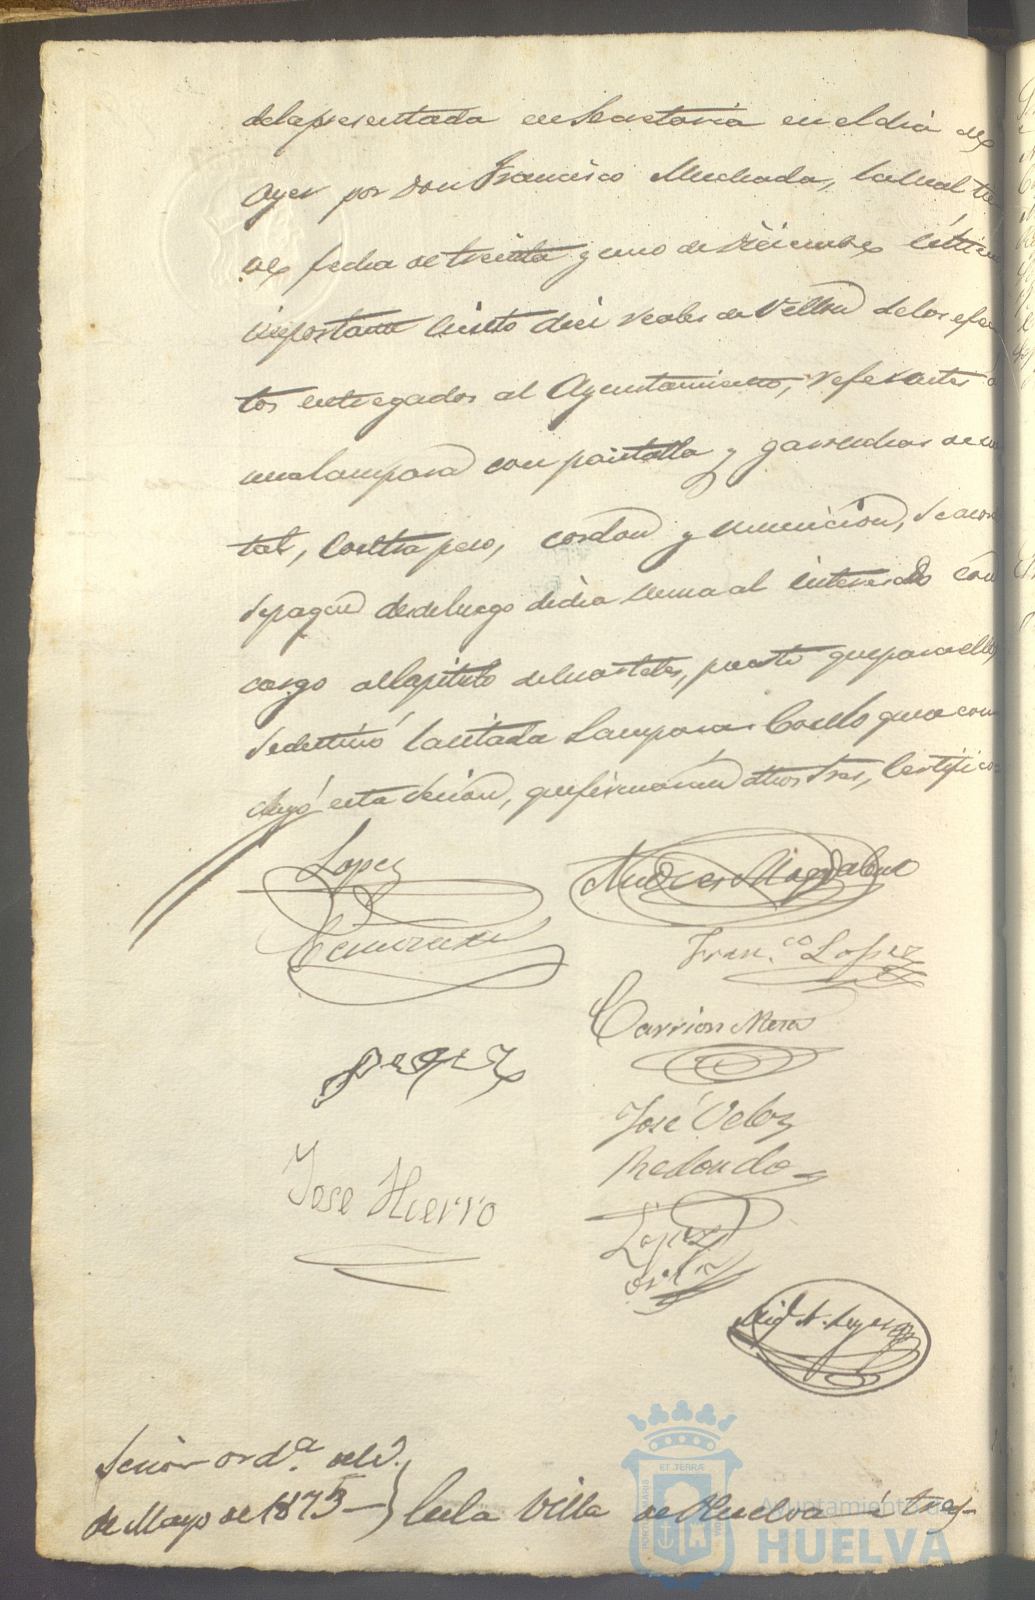 de la presentada en Secretaria en el dia de
Ayer por Don Francisco Muchada, la cual tie
ne fecha de treinta y uno de Diciembre último
importante ciento diez reales de Vellon de los efec
tos entregados al Ayuntamiento, referentes a
una lampara con pantalla y garruchas de me
tal, contrapeso, cordon y municion, se acordó
se pague desde luego dicha suma al interesado con
cargo al Capitulo de Cuarteles, puesto que para ellos
se destinó la citada lampara. Con lo que se con
cluyó esta sesion, que firmaran dichos Sres, Certifico=
Lopez
Andres Magdaleno
Fran.co Lopez
Carrion Mera
Perez
José Veloz
Redondo
Jose Hierro
Lopez
Sesion ord.a del
de Mayo de 1875 } En la Villa de Huelva á tres
ET TERRÆ
Ayuntamiento de
HUELVA